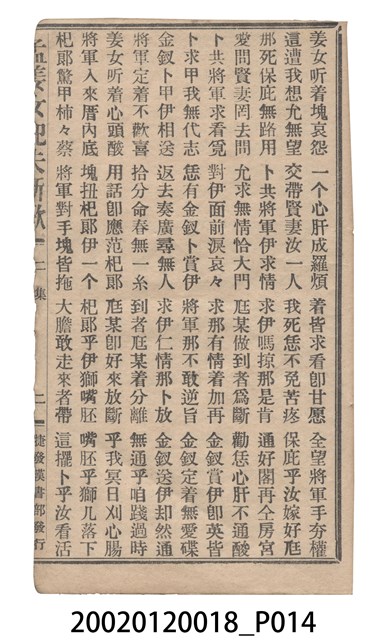 姜女听着塊哀怨　一个心肝成羅煩　着皆求看卽甘愿　全望將軍手夯權
這遭我想尣無望　交帶賢妻汝一人　我死恁不免苦疼　保庇乎汝嫁好尪
那死保庇無路用　卜共將軍伊求情　求伊嗎掠那是肯　通好閣再仝房宮
愛問賢妻罔去問　允求無情恰大門　尪某做到者爲斷　勸恁心肝不通酸
卜共將軍求看覓　對伊面前淚哀々　求那有情着加再　金釵賞伊卽英皆
卜求甲我無代志　恁有金釵卜賞伊　將軍那不敢逆旨　金釵定着無愛碟
金釵卜甲伊相送　返去奏廣尋無人　求伊仁情那卜放　金釵送伊却然通
將軍定着不歡喜　拾分命春無一糸　到者尪某着分離　無通乎咱踐過時
姜女听着心頭酸　用話卽應范杞郞　尪某卽好來放斷　乎我冥日刈心腸
將軍入來厝內底　塊扭杞郞伊一个　杞郞乎伊獅嘴胚　嘴胚乎獅几落下
杞郞驚甲柿々蔡　將軍對手塊皆拖　大膽敢走來者帶　這擺卜乎汝看活
二集
二
捷發漢書部發行
20020120018_P014